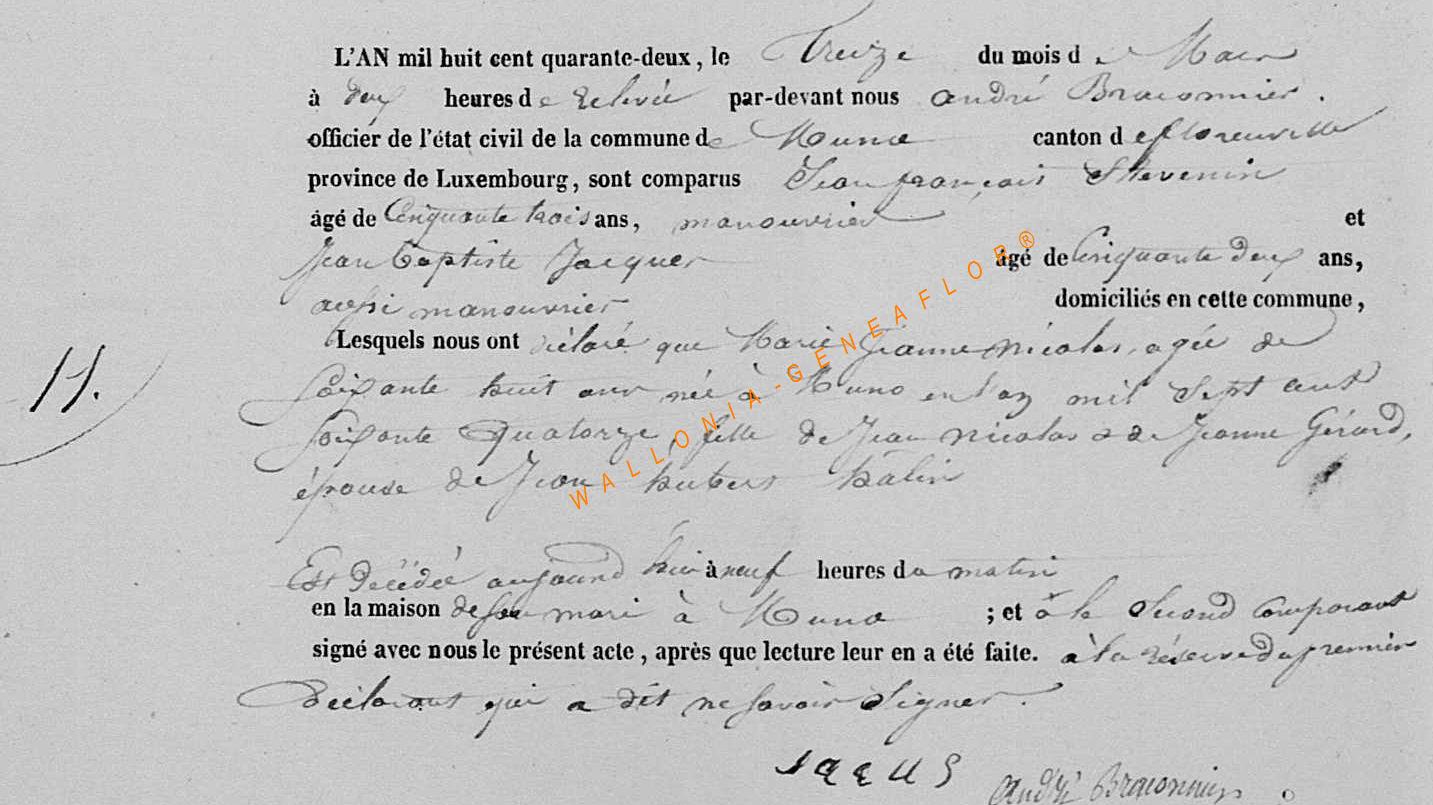 L'AN mil huit cent quarante-deux, le Treize du mois de Mars
à deux heures de relevée par-devant nous andré Braconnier.
officier de l'état civil de la commune de Muno canton de florenville
province de Luxembourg, sont comparus Jean françois Thevenin
âgé de Cinquante trois ans, manouvrier et
Jean baptiste Jacques âgé de Cinquante deux ans,
aussi manouvrier domiciliés en cette commune,
Lesquels nous ont déclaré que Marie Jeanne Nicolas, agée de
Soixante huit ans née à Muno en l'an mil sept cent
soixante quatorze, fille de Jean Nicolas & de Jeanne Gérard,
épouse de Jean hubert
11.
Est Décédée aujourd'hui à neuf heures du matin
en la maison de son mari à Muno ; et a le second comparant
signé avec nous le présent acte, après que lecture leur en a été faite. à la réserve du premier
déclarant qui a dit ne savoir signer.
andré Braconnier
WALLONIA-GENEAFLOR®